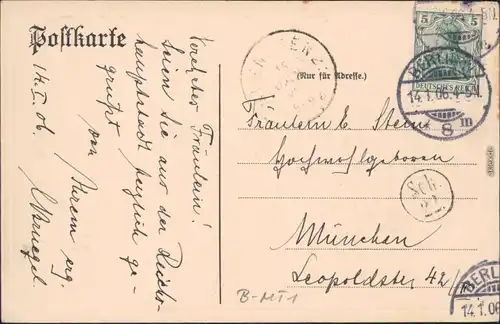 Postkarte
14. I. 06.
Verehrtes Fräulein!
Seien Sie aus der Reichs-
hauptstadt herzlich ge-
grüßt von
Ihrem erg.
(Nur für Adresse.)
5
DEUTSCHES REICH
BERLIN
14.1.06.
8 m
Fräulein E. Stein
Hochwohlgeboren
München
Leopoldstr. 42/
B-MT1
BERLIN
14.1.06